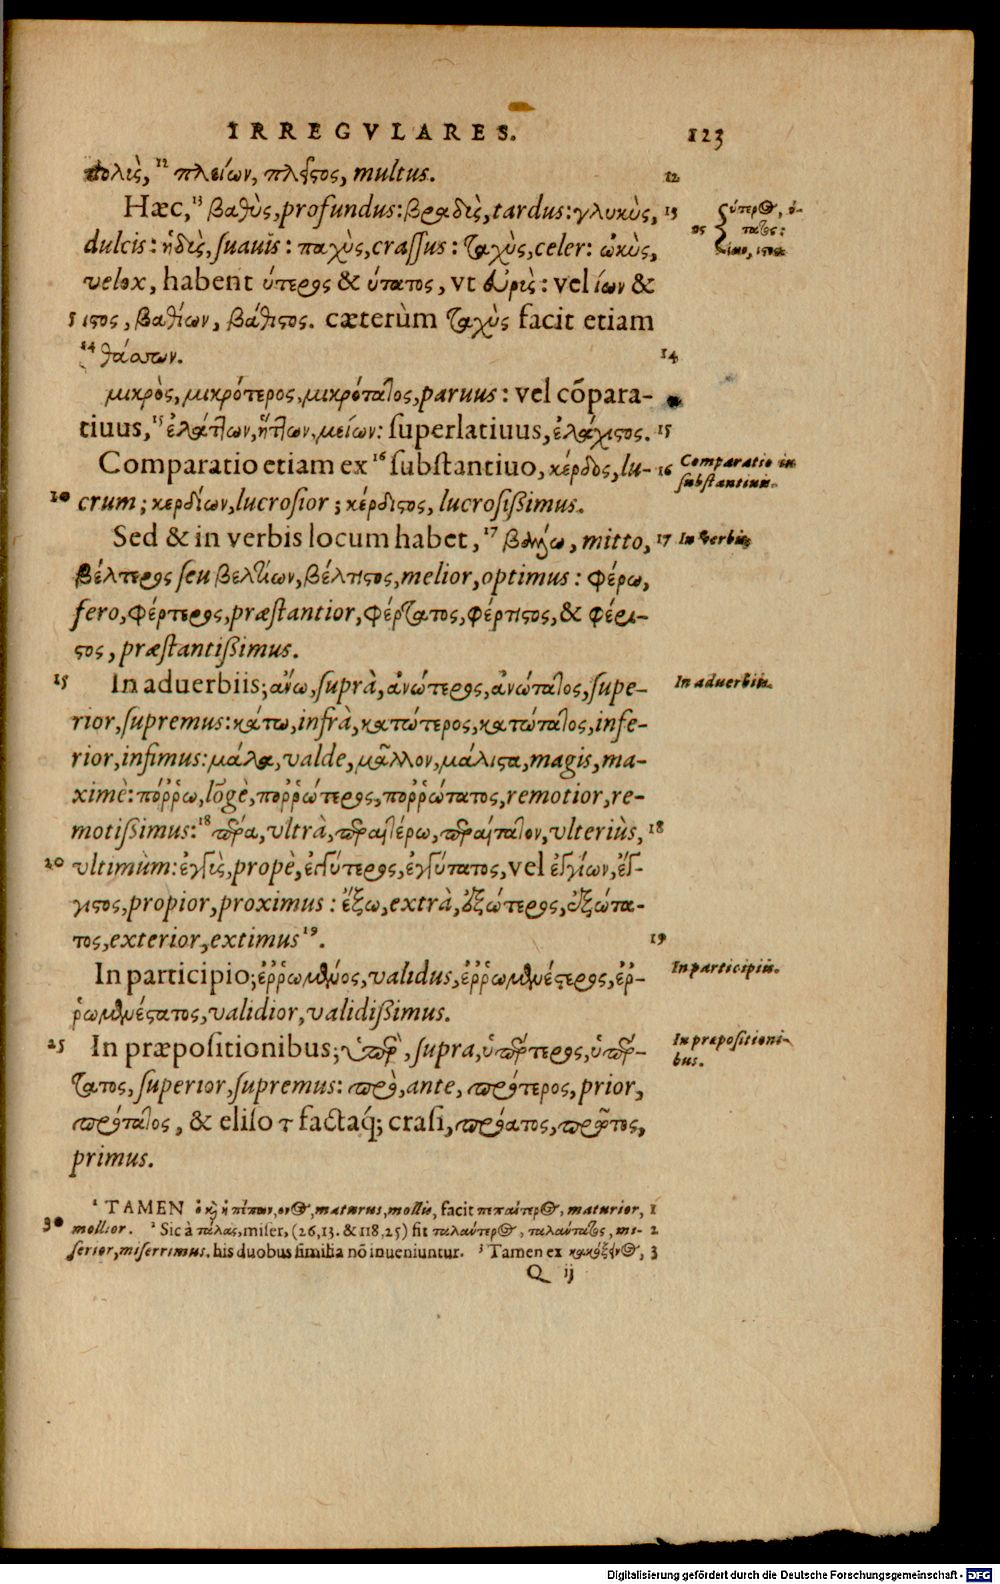 IRREGVLARES. 123
πολὺς, ¹² πλείων, πλεῖστος, multus. 12
Hæc, ¹³ βαθὺς, profundus: βραδὺς, tardus: γλυκὺς, 13
dulcis: ἡδὺς, suauis: παχὺς, crassus: ταχὺς, celer: ὠκὺς,
velox, habent ύτερος & ύτατος, vt εὐρὺς: vel ίων &
5 ιστος, βαθίων, βάθιστος. cæterùm ταχὺς facit etiam
¹⁴ θάσσων. 14
μικρὸς, μικρότερος, μικρότατος, paruus: vel cōpara-
tiuus, ¹⁵ ἐλάττων, ἥττων, μείων: superlatiuus, ἐλάχιστος. 15
Comparatio etiam ex ¹⁶ substantiuo, κέρδος, lu- 16 Comparatio in
substantiuis.
10 crum; κερδίων, lucrosior; κέρδιστος, lucrosissimus.
Sed & in verbis locum habet, ¹⁷ mitto, 17 In verbis
βέλτερος seu βελτίων, βέλτιστος, melior, optimus: φέρω,
fero, φέρτερος, præstantior, φέρτατος, φέρτιστος, & φέρι-
στος, præstantissimus.
15 In aduerbiis; ἄνω, suprà, ἀνώτερος, ἀνώτατος, supe- In aduerbiis.
rior, supremus: κάτω, infrà, κατώτερος, κατώτατος, infe-
rior, infimus: μάλα, valde, μᾶλλον, μάλιστα, magis, ma-
ximè: πόῤῥω, lōgè, ποῤῥώτερος, ποῤῥώτατος, remotior, re-
motissimus: ¹⁸ πέρα, vltrà, περαιτέρω, περαίτατον, vlteriùs, 18
20 vltimùm: ἐγγὺς, propè, ἐγγύτερος, ἐγγύτατος, vel ἐγγίων, ἔγ-
γιστος, propior, proximus: ἔξω, extrà, ἐξώτερος, ἐξώτα-
τος, exterior, extimus ¹⁹. 19
In participio; ἐῤῥωμένος, validus, ἐῤῥωμενέστερος, ἐῤ- In participiis.
ῥωμενέστατος, validior, validissimus.
25 In præpositionibus; ὑπὲρ, supra, ὑπέρτερος, ὑπέρ- In præpositioni-
bus.
τατος, superior, supremus: πρὸ, ante, πρότερος, prior,
πρότατος, & eliso τ factaq́; crasi, πρόατος, πρῶτος,
primus.
¹ TAMEN ὁ καὶ ἡ πέπων, ονος, maturus, mollis, facit πεπαίτερος, maturior, 1
30 mollior. ² Sic à τάλας, miser, (26,13. & 118,25) fit ταλαύτερος, ταλαύτατος, mi- 2
serior, miserrimus. his duobus similia nō inueniuntur. ³ Tamen ex κακόξενος, 3
Q ij
Digitalisierung gefördert durch die Deutsche Forschungsgemeinschaft - DFG